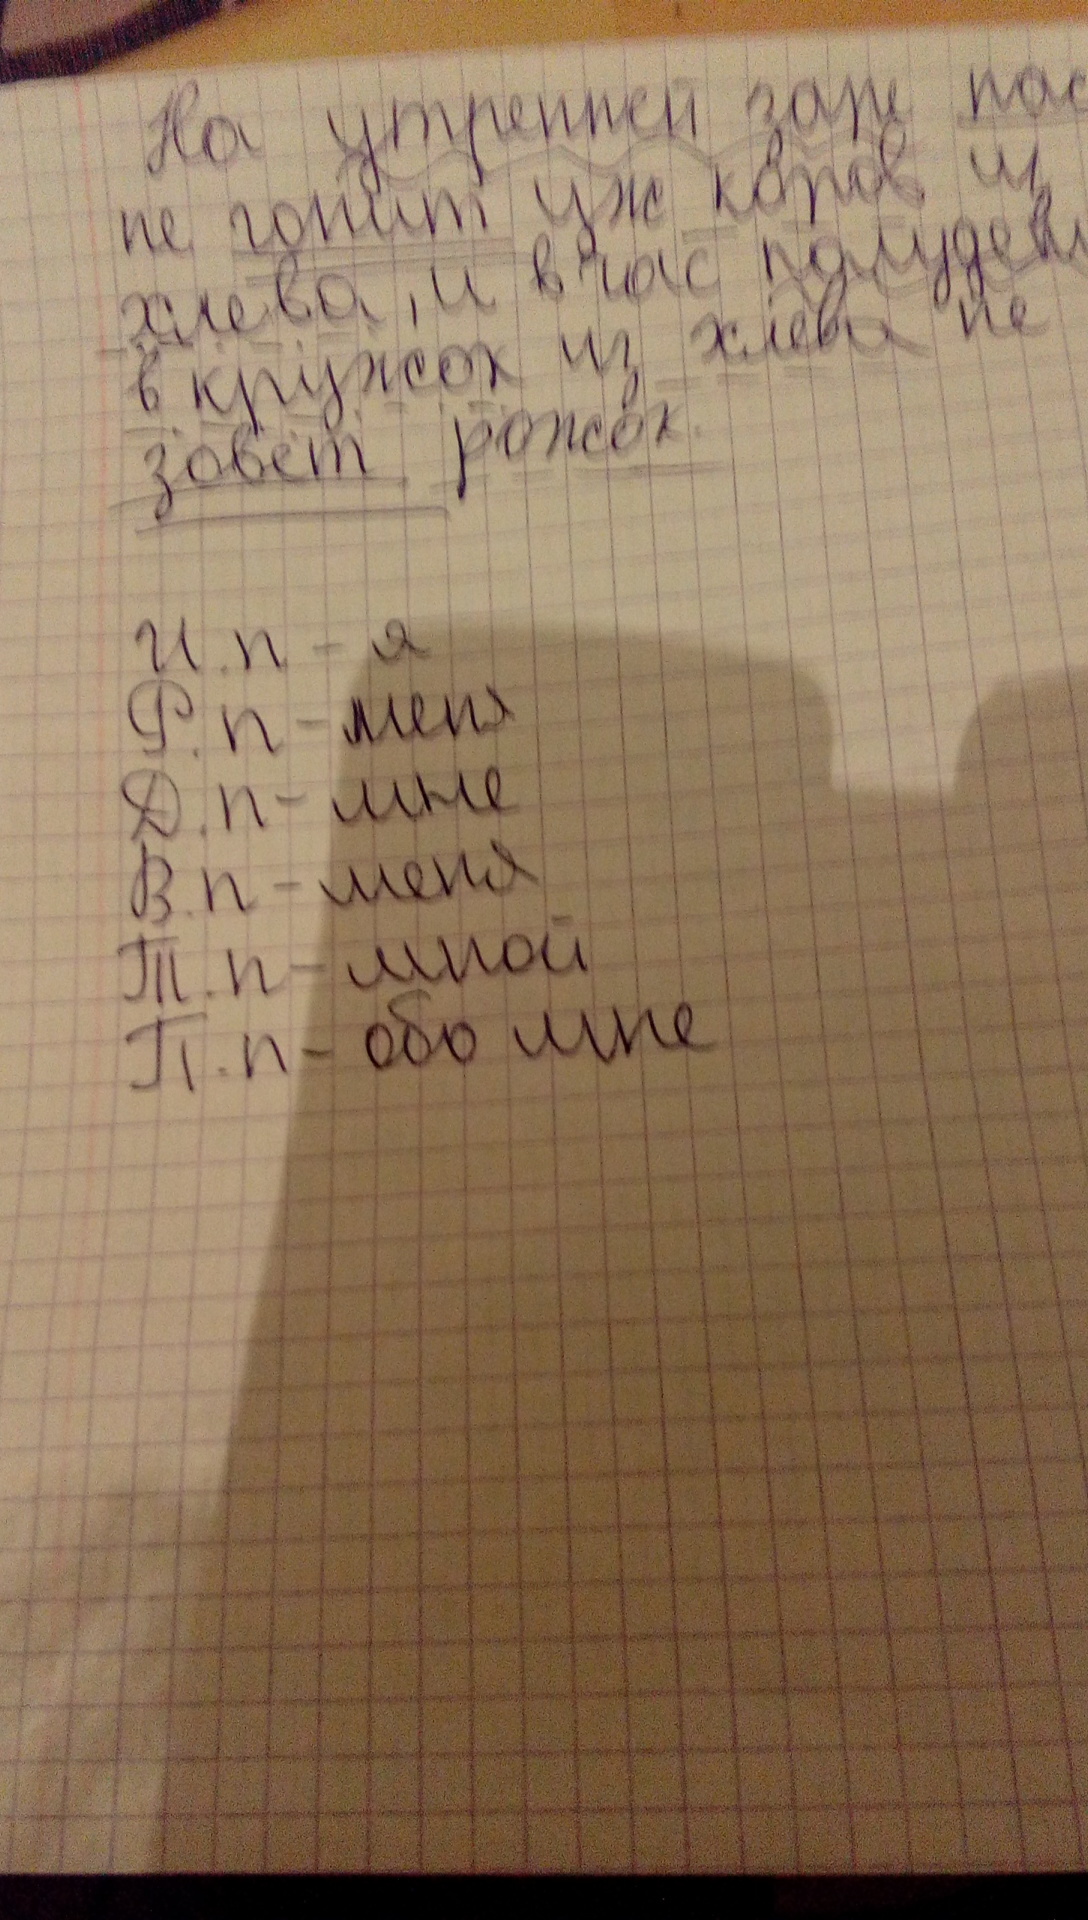 На утренней заре пас
не гонит уж коров из
хлева, и в час полуден
в кружок из хлева не
зовёт рожок.
И.п - я
Р.п - меня
Д.п - мне
В.п - меня
Т.п - мной
П.п - обо мне